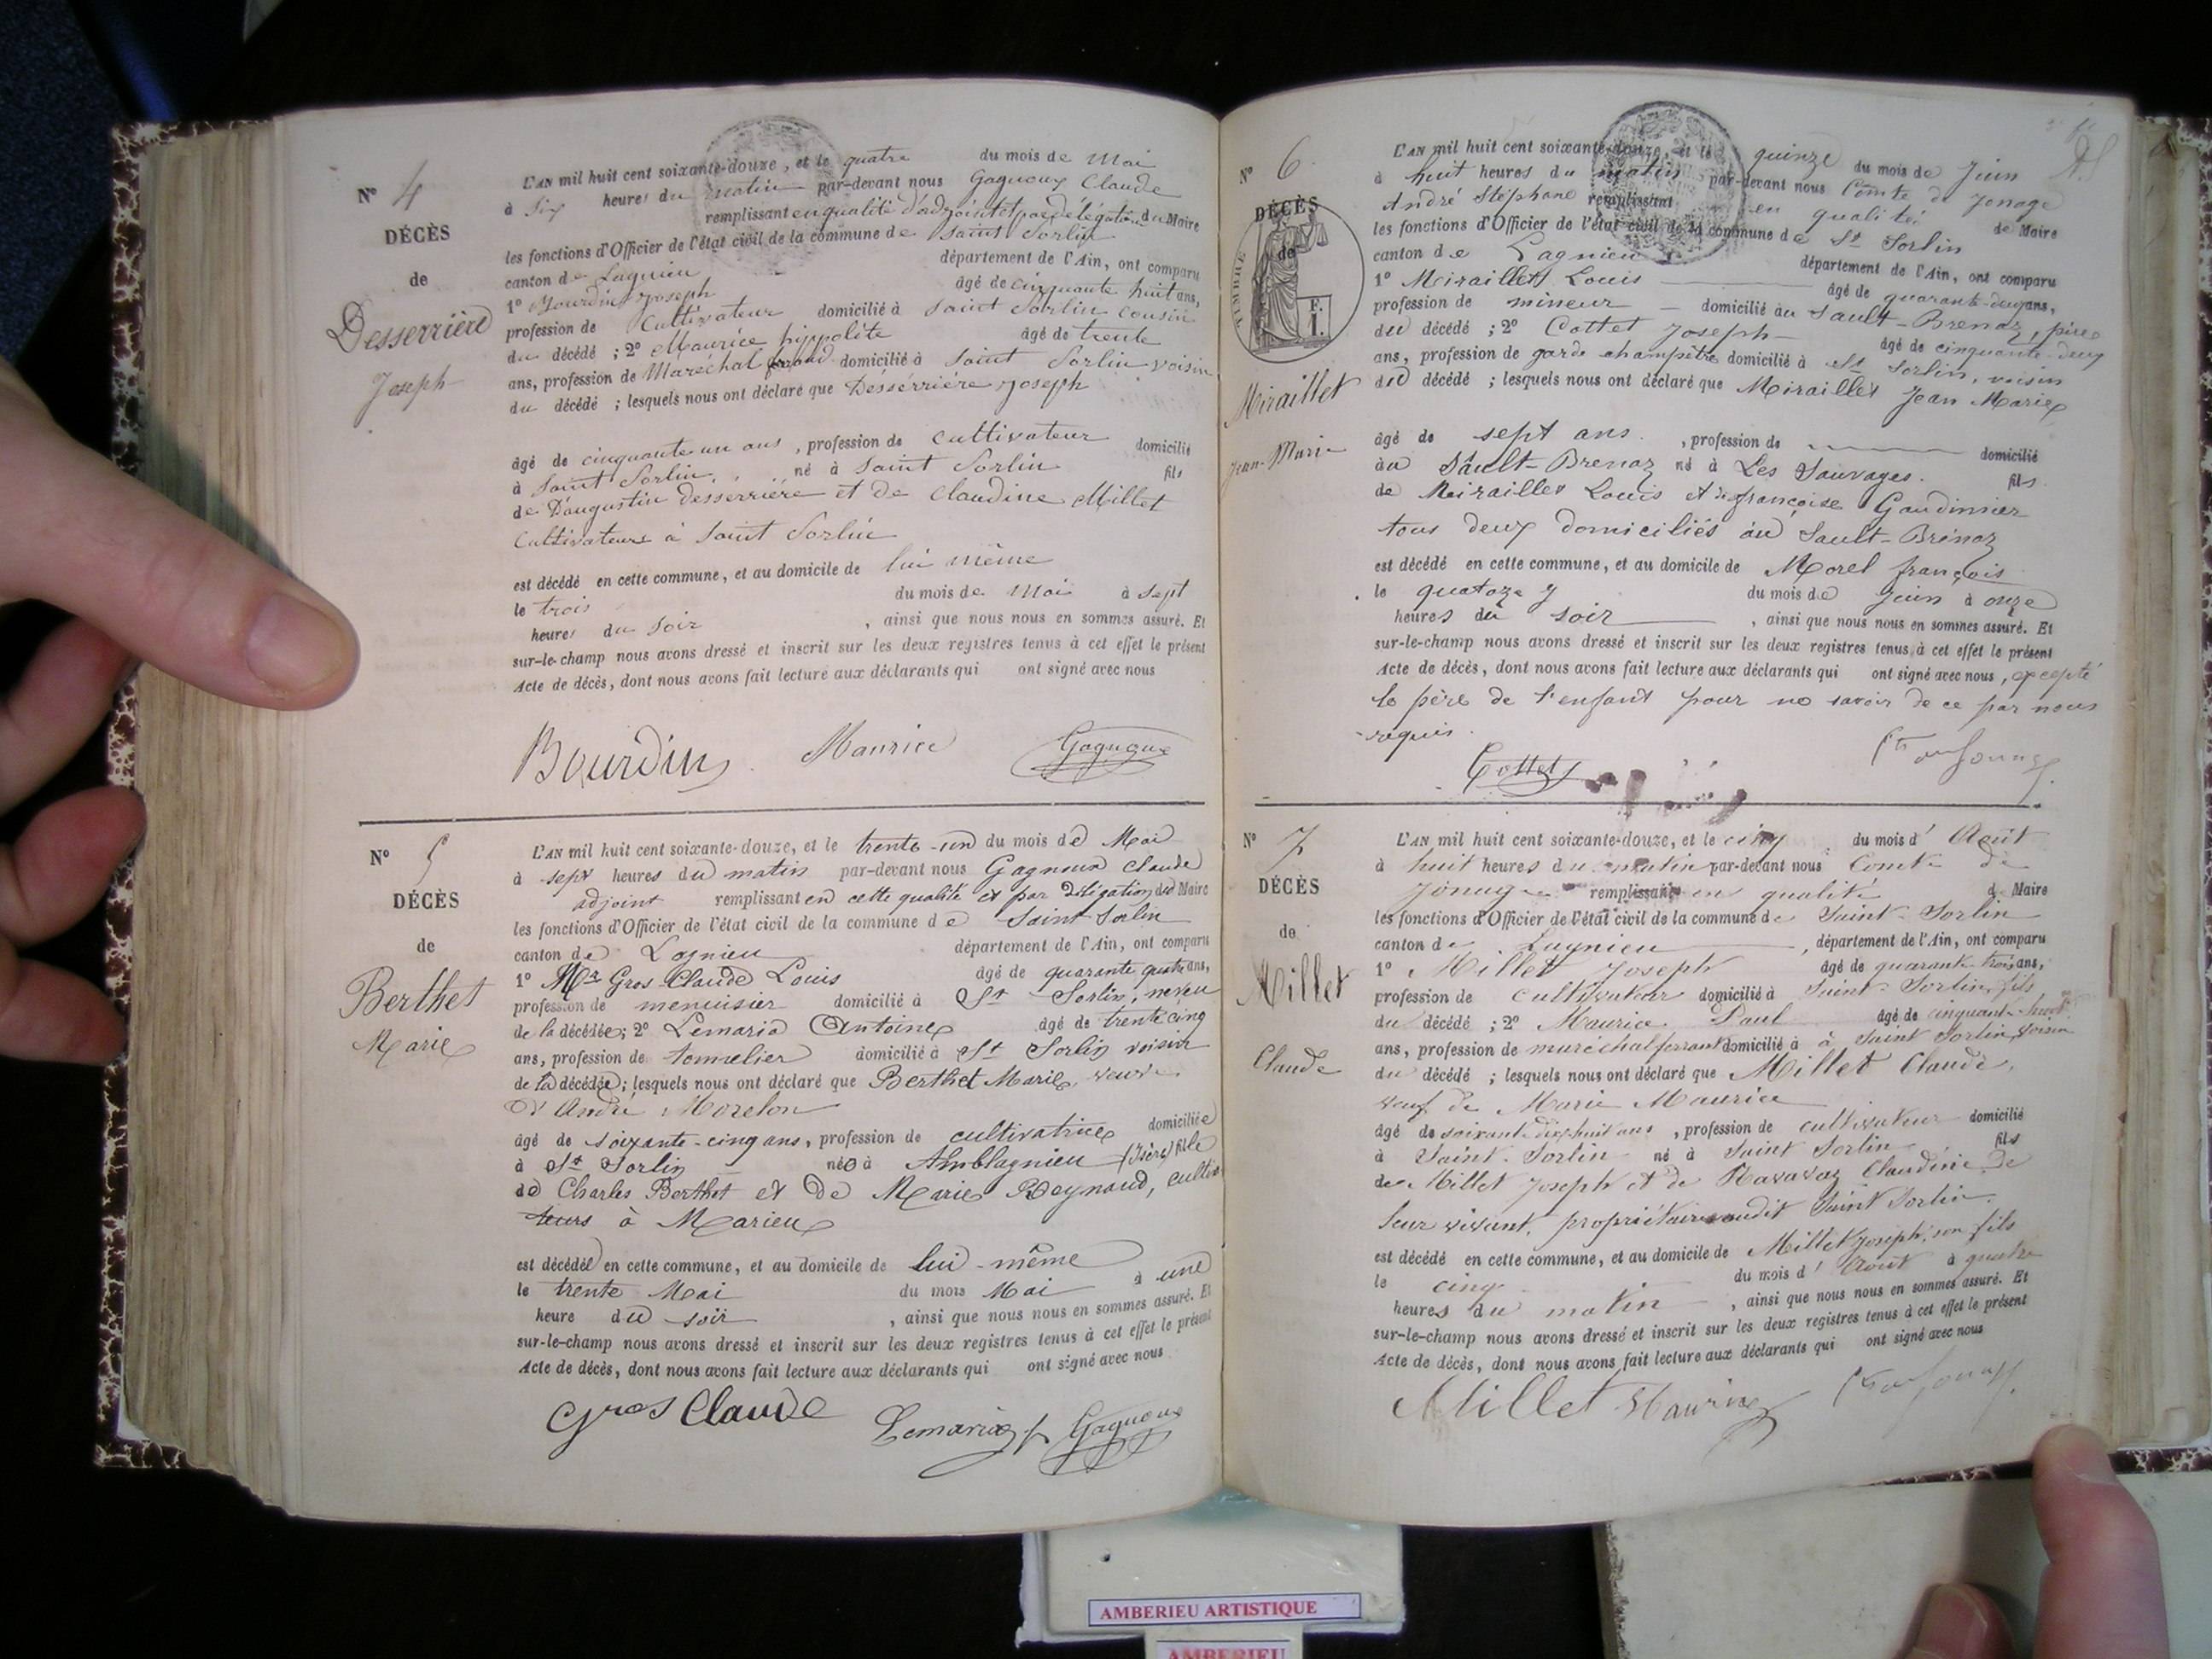 N° 4
DÉCÈS
de
Desserrière
Joseph
L'AN mil huit cent soixante-douze, et le quatre du mois de Mai
à Six heures du matin par-devant nous Gagnoux Claude
remplissant en qualité d'adjoint et par délégation du Maire
les fonctions d'Officier de l'état civil de la commune de Saint Sorlin
canton de Lagnieu département de l'Ain, ont comparu
1° Bourdin Joseph âgé de cinquante huit ans,
profession de Cultivateur domicilié à Saint Sorlin cousin
du décédé ; 2° Maurice hippolite âgé de trente
ans, profession de Maréchal ferrand domicilié à Saint Sorlin voisin
du décédé ; lesquels nous ont déclaré que Desserrière Joseph
âgé de cinquante un ans, profession de Cultivateur domicilié
à Saint Sorlin, né à Saint Sorlin fils
de D'augustin desserrière et de Claudine Millet
Cultivateurs à Saint Sorlin
est décédé en cette commune, et au domicile de lui même
le trois du mois de Mai à Sept
heures du Soir, ainsi que nous nous en sommes assuré. Et
sur-le-champ nous avons dressé et inscrit sur les deux registres tenus à cet effet le présent
Acte de décès, dont nous avons fait lecture aux déclarants qui ont signé avec nous
Bourdin Maurice Gagnoux
N° 5
DÉCÈS
de
Berthet
Marie
L'AN mil huit cent soixante-douze, et le trente-un du mois de Mai
à sept heures du matin par-devant nous Gagnoux Claude
adjoint remplissant en cette qualité et par délégation du Maire
les fonctions d'Officier de l'état civil de la commune de Saint Sorlin
canton de Lagnieu département de l'Ain, ont comparu
1° Mr Gros Claude Louis âgé de quarante quatre ans,
profession de menuisier domicilié à St Sorlin, neveu
de la décédée; 2° Lemaria Antoine âgé de trente cinq
ans, profession de tonnelier domicilié à St Sorlin voisin
de la décédée; lesquels nous ont déclaré que Berthet Marie, veuve
d'André Morelon
âgé de soixante-cinq ans, profession de cultivatrice domiciliée
à St Sorlin née à Amblagnieu (Isère) fille
de Charles Berthet et de Marie Reynaud, cultiva
teurs à Marieu
est décédée en cette commune, et au domicile de lui-même
le trente Mai du mois Mai à une
heure du soir, ainsi que nous nous en sommes assuré. Et
sur-le-champ nous avons dressé et inscrit sur les deux registres tenus à cet effet le présent
Acte de décès, dont nous avons fait lecture aux déclarants qui ont signé avec nous
Gros Claude Lemaria Gagnoux
N° 6
DÉCÈS
de
TIMBRE
F.
1.
Miraillet
Jean-Marie
L'AN mil huit cent soixante-douze, et le quinze du mois de Juin
à huit heures du matin par-devant nous Comte de Jonage
André Stéphane remplissant en qualité de Maire
les fonctions d'Officier de l'état civil de la commune de St Sorlin
canton de Lagnieu département de l'Ain, ont comparu
1° Miraillet Louis âgé de quarante-deux ans,
profession de mineur domicilié au Sault-Brenaz, père
du décédé ; 2° Cottet Joseph âgé de cinquante-deux
ans, profession de garde champêtre domicilié à St Sorlin, voisin
du décédé ; lesquels nous ont déclaré que Miraillet Jean Marie
âgé de sept ans, profession de domicilié
au Sault-Brenaz né à Les Sauvages. fils
de Miraillet Louis et de françoise Gaudinier
tous deux domiciliés au Sault-Brénaz
est décédé en cette commune, et au domicile de Morel françois
le quatorze du mois de Juin à onze
heures du soir, ainsi que nous nous en sommes assuré. Et
sur-le-champ nous avons dressé et inscrit sur les deux registres tenus à cet effet le présent
Acte de décès, dont nous avons fait lecture aux déclarants qui ont signé avec nous, excepté
le père de l'enfant pour ne savoir de ce par nous
requis.
Cottet Cte de Jonage
N° 7
DÉCÈS
de
Millet
Claude
L'AN mil huit cent soixante-douze, et le cinq du mois d'Août
à huit heures du matin par-devant nous Comte de
Jonage remplissant en qualité de Maire
les fonctions d'Officier de l'état civil de la commune de Saint-Sorlin
canton de Lagnieu, département de l'Ain, ont comparu
1° Millet Joseph âgé de quarante-trois ans,
profession de cultivateur domicilié à Saint-Sorlin, fils
du décédé ; 2° Maurice Paul âgé de cinquante-huit
ans, profession de maréchal ferrant domicilié à à Saint Sorlin, voisin
du décédé ; lesquels nous ont déclaré que Millet Claude,
veuf de Marie Maurice
âgé de soixante-dix-huit ans, profession de cultivateur domicilié
à Saint-Sorlin né à Saint Sorlin fils
de Millet Joseph et de Ravavaz Claudine de
leur vivant, propriétaires audit Saint Sorlin.
est décédé en cette commune, et au domicile de Millet Joseph, son fils
le cinq du mois d'Août à quatre
heures du matin, ainsi que nous nous en sommes assuré. Et
sur-le-champ nous avons dressé et inscrit sur les deux registres tenus à cet effet le présent
Acte de décès, dont nous avons fait lecture aux déclarants qui ont signé avec nous
Millet Maurice Cte de Jonage
AMBERIEU ARTISTIQUE
AMBERIEU